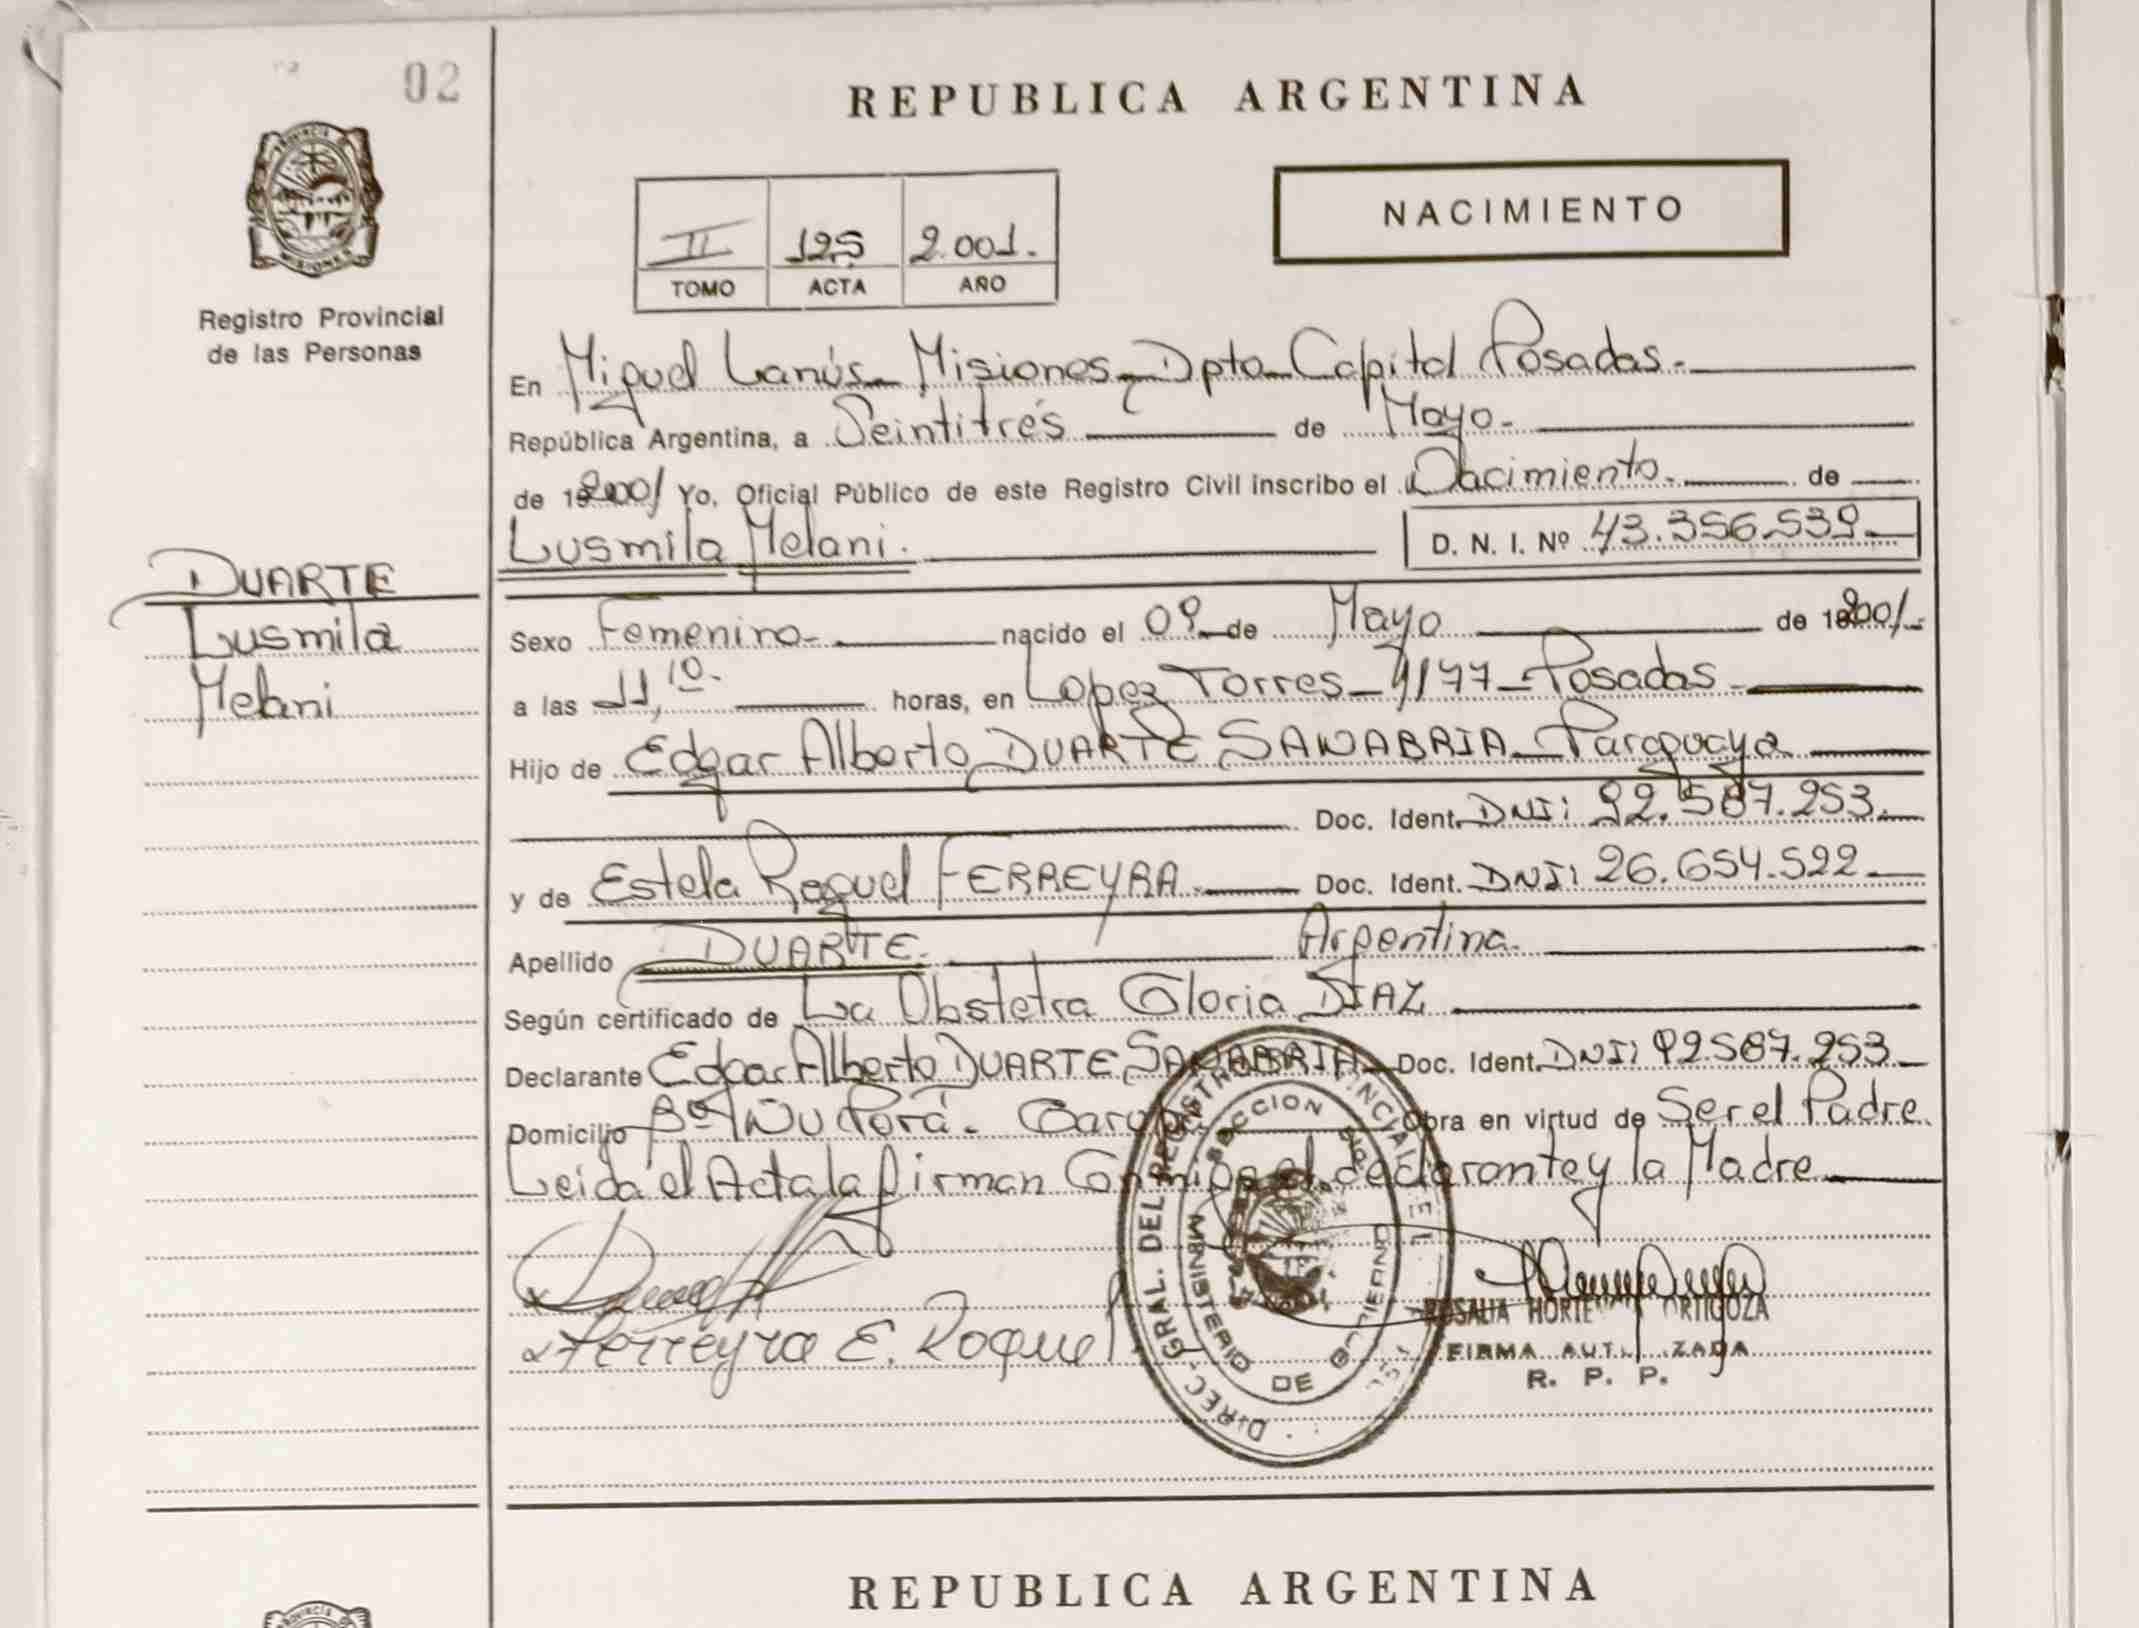 02
REPUBLICA ARGENTINA
PROVINCIA
MISIONES
Registro Provincial
de las Personas
NACIMIENTO
II 125 2.001.
TOMO ACTA AÑO
En Miguel Lanús - Misiones - Dpto - Capital Posadas.-
República Argentina, a Seintitrés de Mayo.-
de 2001 Yo, Oficial Público de este Registro Civil inscribo el Nacimiento.- de
Lusmila Melani. D. N. I. Nº 43.356.539.-
DUARTE
Lusmila
Melani
Sexo Femenino.- nacido el 09 de Mayo de 2001.-
a las 11,10.- horas, en Lopez Torres - 4177 - Posadas.-
Hijo de Edgar Alberto DUARTE SANABRIA - Paraguaya
Doc. Ident. DNI: 92.587.253.-
y de Estela Raquel FERREYRA.- Doc. Ident. DNI: 26.654.522.-
Apellido DUARTE.- Argentina.-
Según certificado de La Obstetra Gloria DIAZ
Declarante Edgar Alberto DUARTE SANABRIA - Doc. Ident. DNI: 92.587.253.-
Domicilio Bº Ñu Porá.- Obra en virtud de Ser el Padre.
Leida el Acta la firman Conmigo el declarante y la Madre
Ferreyra E. Raquel
DIREC. GRAL. DEL REGISTRO
SECCION
MINISTERIO DE GOBIERNO
ROSALIA ORTIGOZA
FIRMA AUTORIZADA
R. P. P.
REPUBLICA ARGENTINA
PROVINCIA